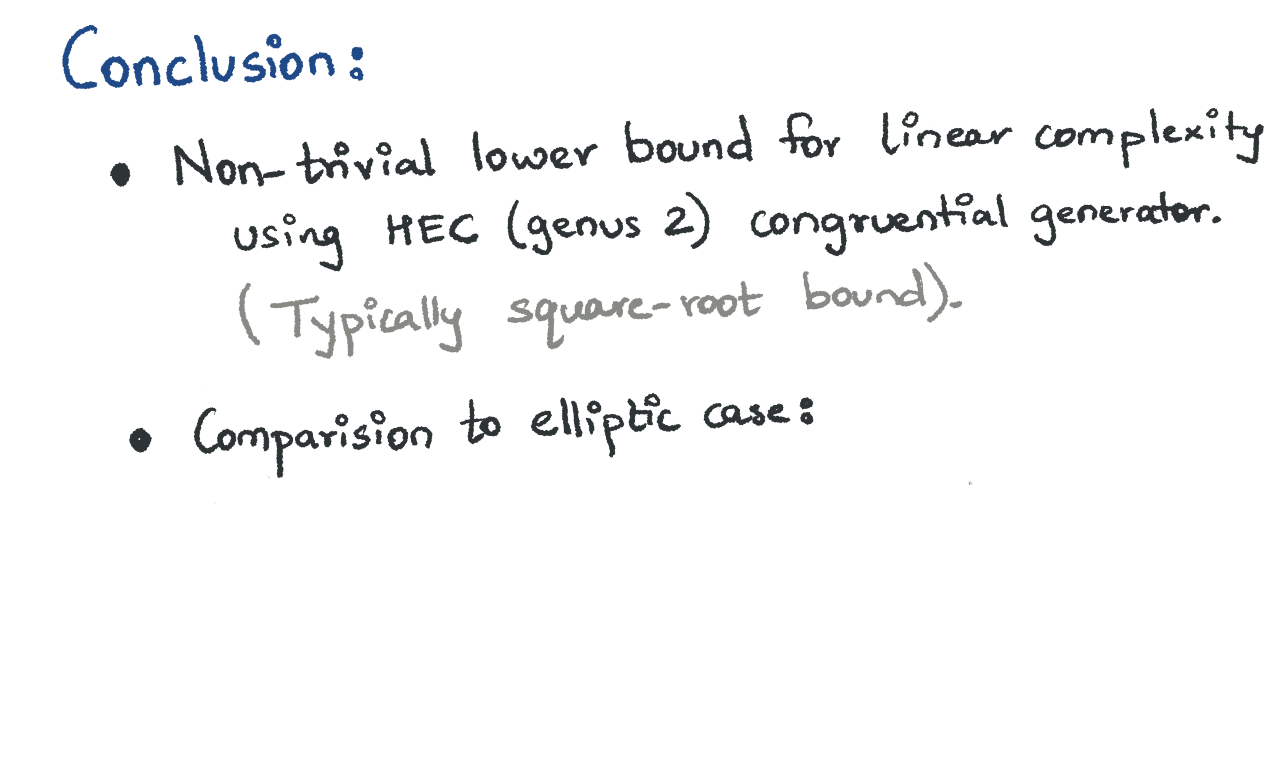 Conclusion:
• Non-trivial lower bound for linear complexity
using HEC (genus 2) congruential generator.
(Typically square-root bound).
• Comparision to elliptic case: